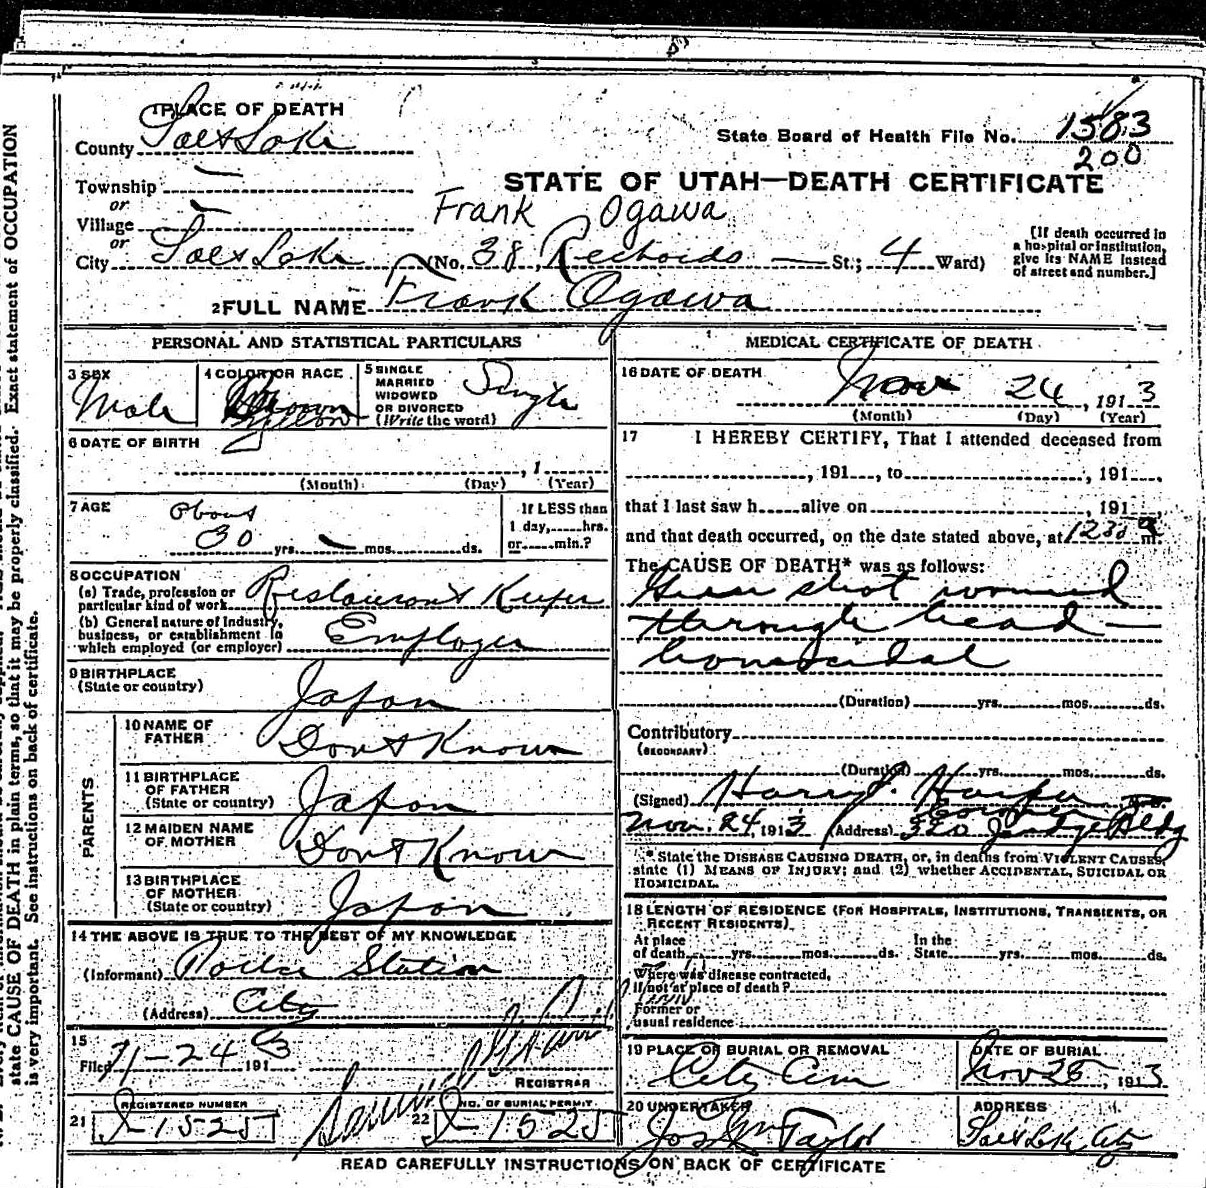 1 PLACE OF DEATH
County Salt Lake
State Board of Health File No. 1583
200
Township
or
Village
or
STATE OF UTAH—DEATH CERTIFICATE
Frank Ogawa
City Salt Lake (No. 38 St.; 4 Ward)
[If death occurred in
a hospital or institution,
give its NAME instead
of street and number.]
2 FULL NAME Frank Ogawa
PERSONAL AND STATISTICAL PARTICULARS
3 SEX
Male
4 COLOR OR RACE
5 SINGLE
MARRIED
WIDOWED
OR DIVORCED
(Write the word)
Single
6 DATE OF BIRTH
, 1
(Month) (Day) (Year)
7 AGE
About
30 yrs. mos. ds.
If LESS than
1 day, hrs.
or min.?
8 OCCUPATION
(a) Trade, profession or
particular kind of work Restaurant Keeper
(b) General nature of Industry,
business, or establishment in
which employed (or employer) Employer
9 BIRTHPLACE
(State or country) Japan
PARENTS
10 NAME OF
FATHER Dont Know
11 BIRTHPLACE
OF FATHER
(State or country) Japan
12 MAIDEN NAME
OF MOTHER Dont Know
13 BIRTHPLACE
OF MOTHER
(State or country) Japan
14 THE ABOVE IS TRUE TO THE BEST OF MY KNOWLEDGE
(Informant) Police Station
(Address) City
15
Filed 11-24 1913
REGISTRAR
REGISTERED NUMBER
21 I-1525
NO. OF BURIAL PERMIT
22 I-1525
MEDICAL CERTIFICATE OF DEATH
16 DATE OF DEATH
Nov 24, 1913
(Month) (Day) (Year)
17 I HEREBY CERTIFY, That I attended deceased from
, 191 , to , 191 ,
that I last saw h alive on , 191
and that death occurred, on the date stated above, at 1230 a m.
The CAUSE OF DEATH* was as follows:
Gun shot wound
through head—
homicidal
(Duration) yrs. mos. ds.
Contributory
(SECONDARY)
(Duration) yrs. mos. ds.
(Signed) Harry J. Harper
Coroner
Nov. 24, 1913 (Address) 320 Judge Bldg
* State the DISEASE CAUSING DEATH, or, in deaths from VIOLENT CAUSES,
state (1) MEANS OF INJURY; and (2) whether ACCIDENTAL, SUICIDAL OR
HOMICIDAL.
18 LENGTH OF RESIDENCE (FOR HOSPITALS, INSTITUTIONS, TRANSIENTS, OR
RECENT RESIDENTS)
At place
of death yrs. mos. ds.
In the
State yrs. mos. ds.
Where was disease contracted,
if not at place of death?
Former or
usual residence
19 PLACE OR BURIAL OR REMOVAL
City Cem
DATE OF BURIAL
Nov 25, 1913
20 UNDERTAKER
Jos Wm Taylor
ADDRESS
Salt Lake City
READ CAREFULLY INSTRUCTIONS ON BACK OF CERTIFICATE
state CAUSE OF DEATH in plain terms, so that it may be properly classified. Exact statement of OCCUPATION
is very important. See instructions on back of certificate.